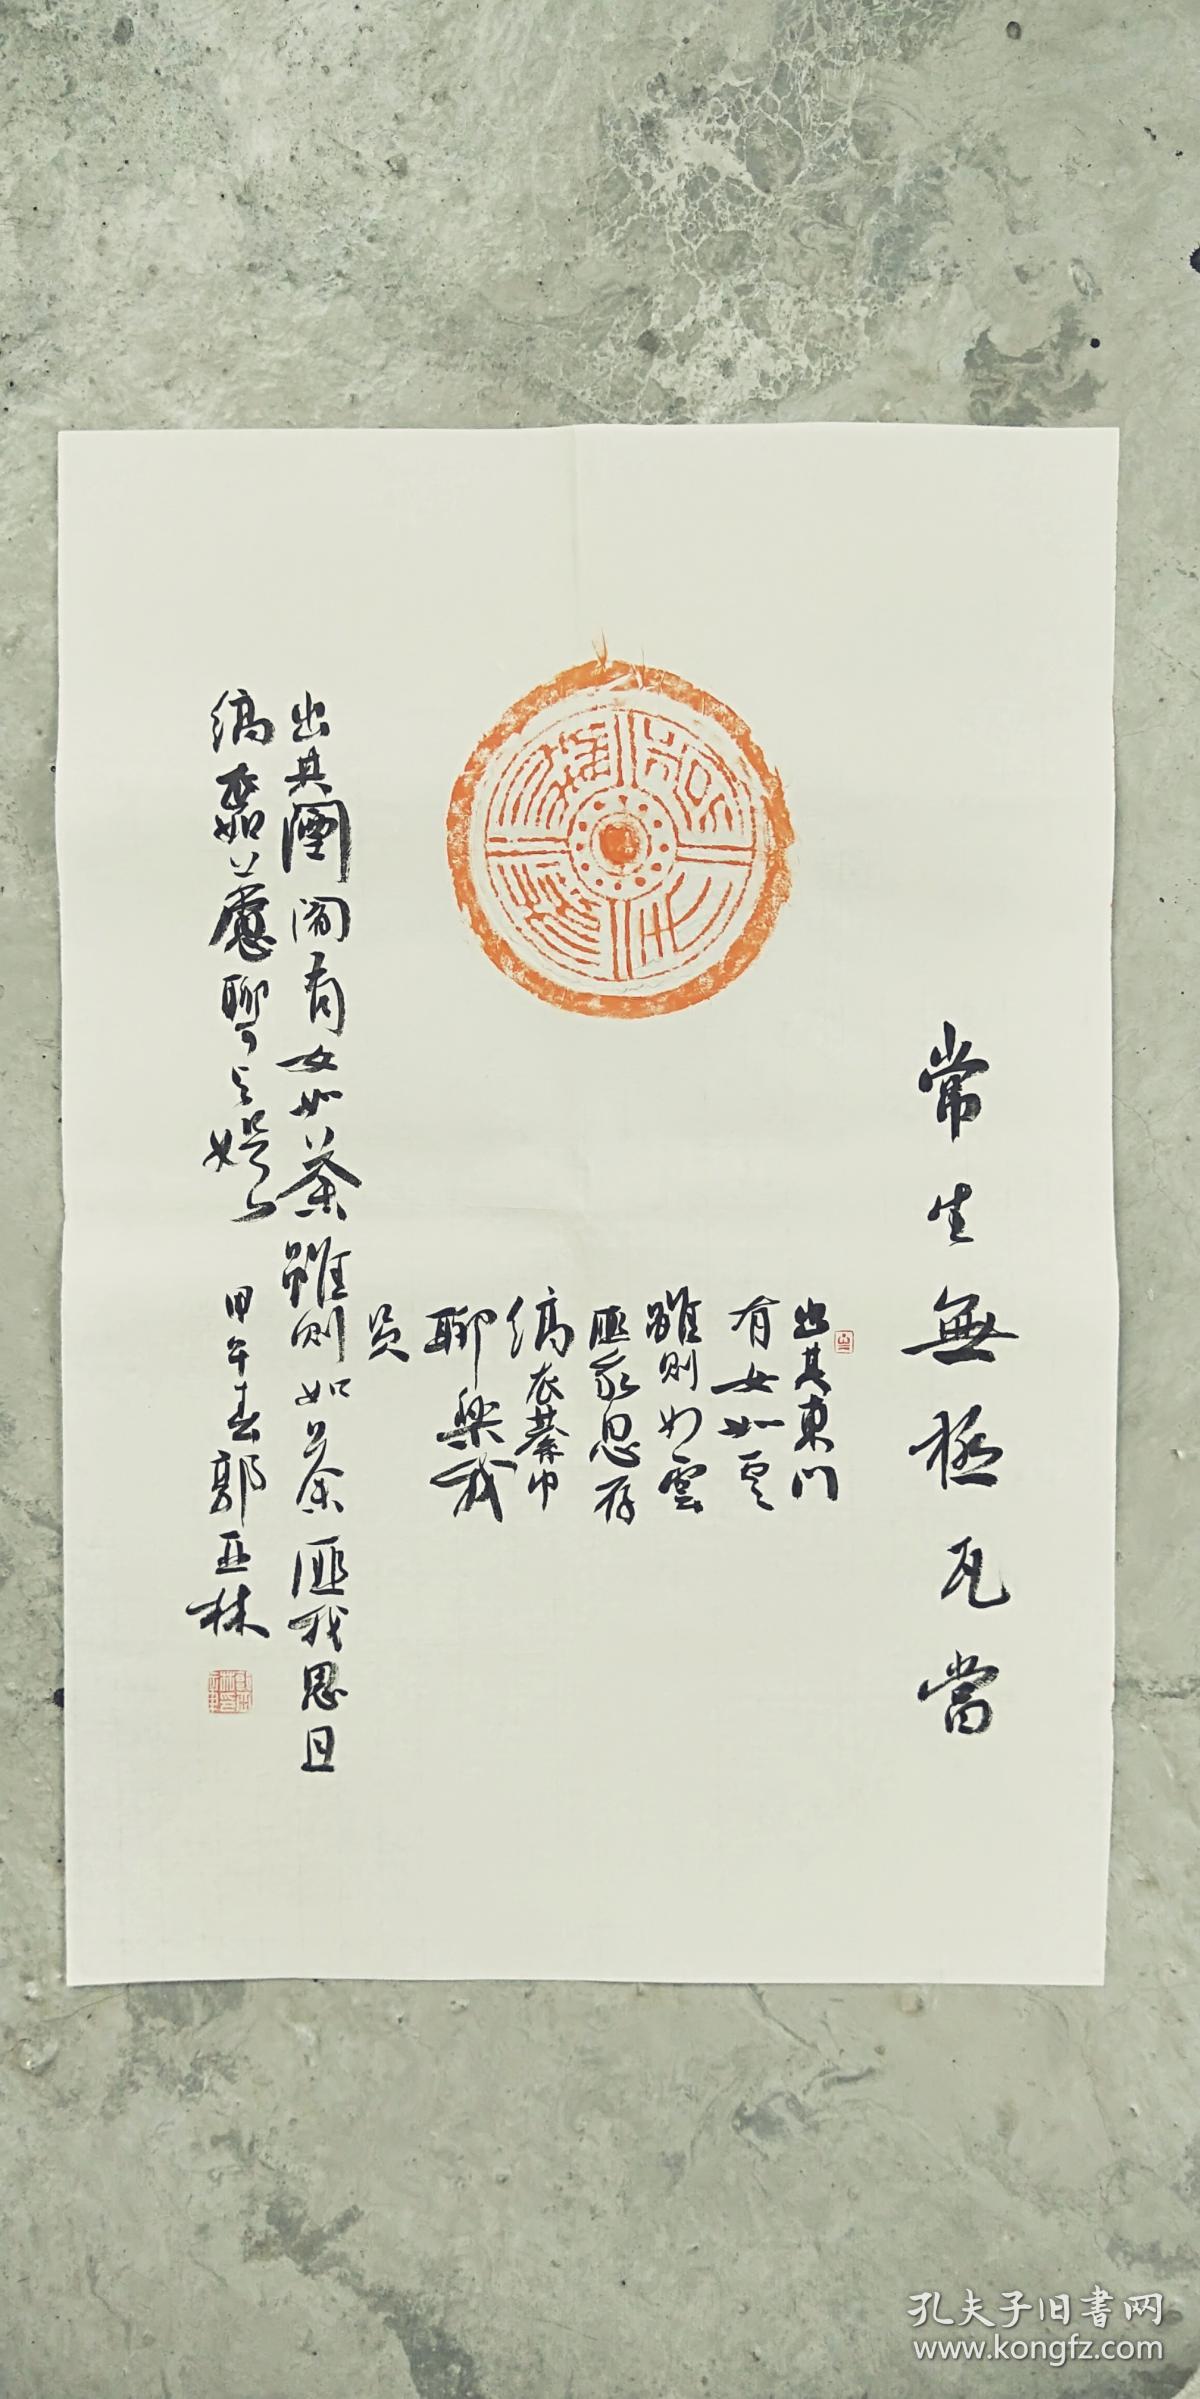 常生無極瓦當
出其東門
有女如雲
雖則如雲
匪我思存
縞衣綦巾
聊樂我
員
出其闉闍有女如荼雖則如荼匪我思且
縞衣茹藘聊可與娛
甲午春郭亚林
孔夫子旧書网
www.kongfz.com